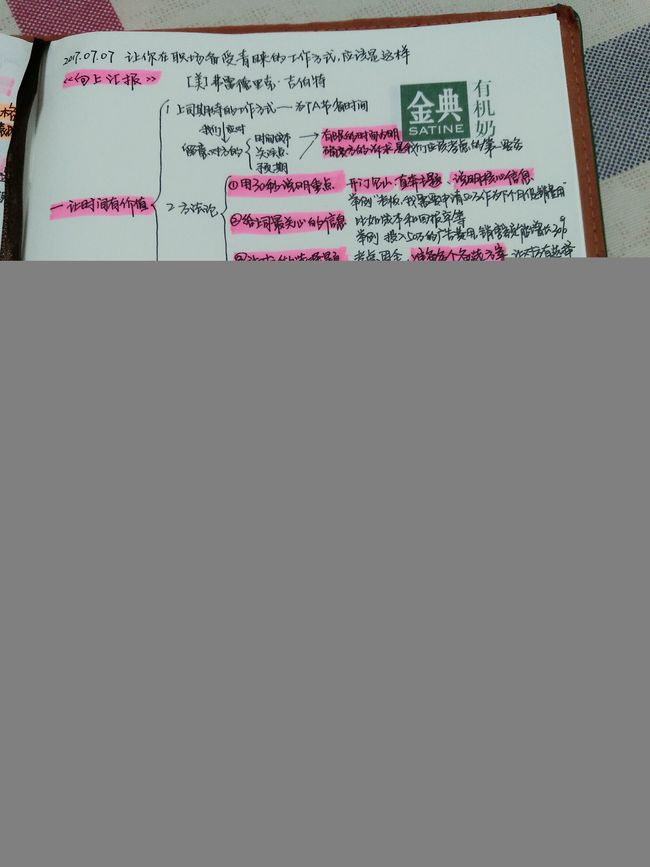 2017.07.07 让你在职场备受青睐的工作方式,应该是这样
《向上汇报》 [美]弗雷德里克·吉伯特
金典
SATINE
有机奶
1 上司期待的工作方式——为TA节省时间
我们应对
留意对方的
时间成本
关注点
预期
有限的时间内明
确对方的诉求,是我们应该考虑的第一要务
一 让时间有价值
2 方法论
①用30秒说明重点 开门见山、直奔主题、说明核心信息
举例 "老板,我需要申请50万作为下个月促销费用"
②给上司最关心的信息 比如成本和回报率等
举例 投入50万的广告费用,销售额能增长30%
准备多个备选方案 让对方有选择